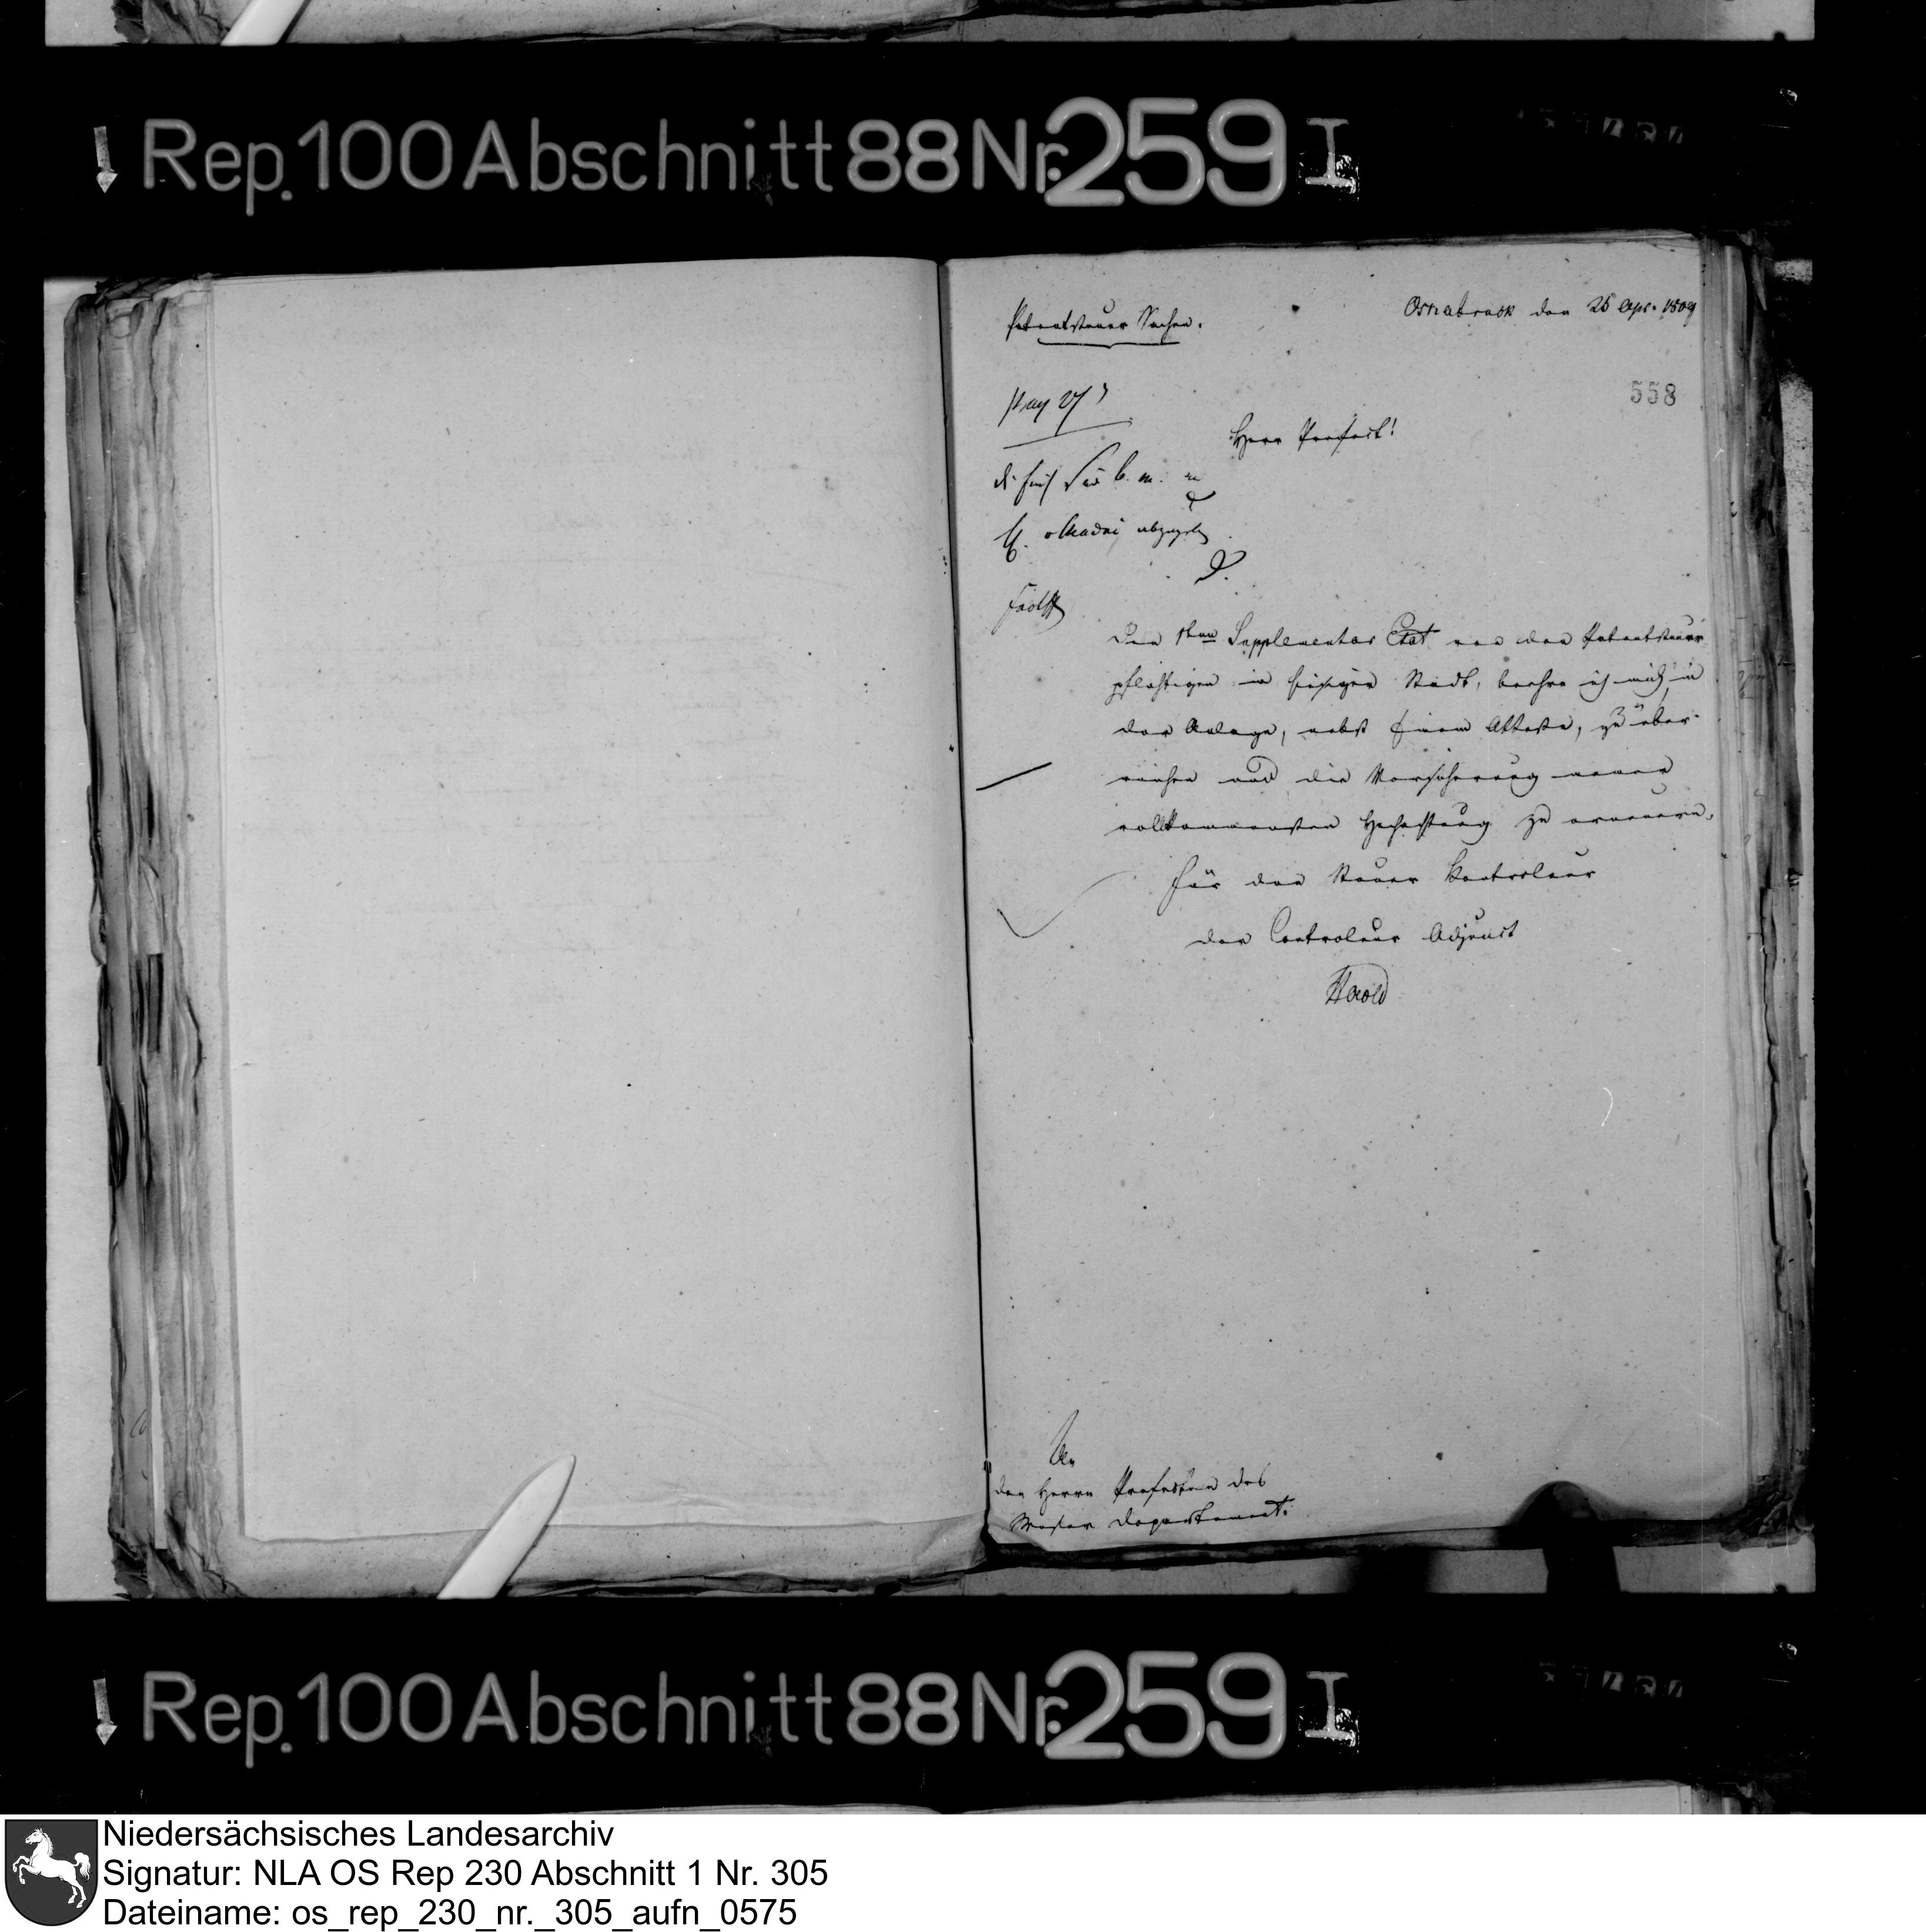 Rep. 100 Abschnitt 88 Nr. 259 I
Patentsteuer Sachen.
Osnabrück den 25 Apr. 1809
558
Herr Praefect!
Den 1ten Supplementar Etat von den Patentsteuer
pflichtigen in hiesiger Stadt, beehre ich mich in
der Anlage, nebst einem Atteste, zu über-
reichen und die Versicherung meiner
vollkommensten Hochachtung zu erneuern.
Für den Steuer Kontroleur
der Controleur Adjunct
Herold
An
den Herrn Praefecten des
Weser Departement.
Rep. 100 Abschnitt 88 Nr. 259 I
Niedersächsisches Landesarchiv
Signatur: NLA OS Rep 230 Abschnitt 1 Nr. 305
Dateiname: os_rep_230_nr._305_aufn_0575